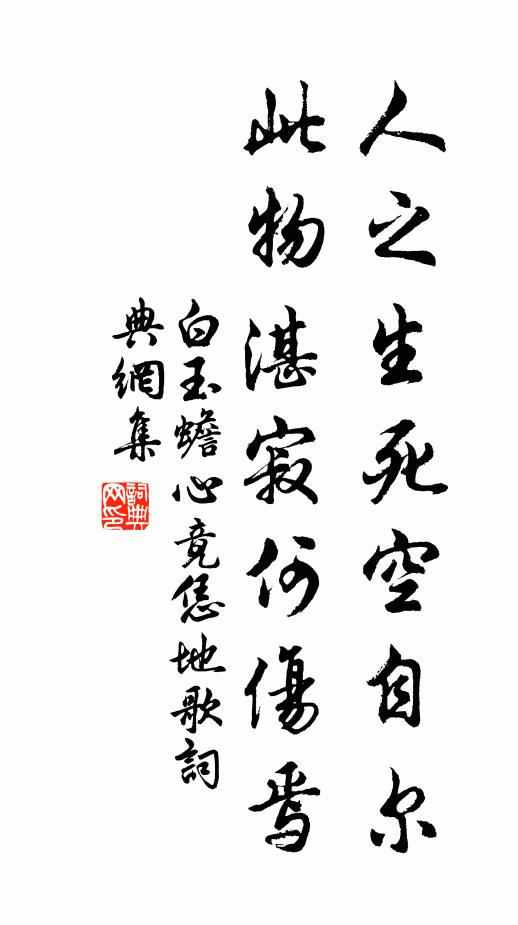 人之生死空自尔
此物湛寂何傷焉
白玉蟾心竟恁地歌詞
典網集
詞典网印